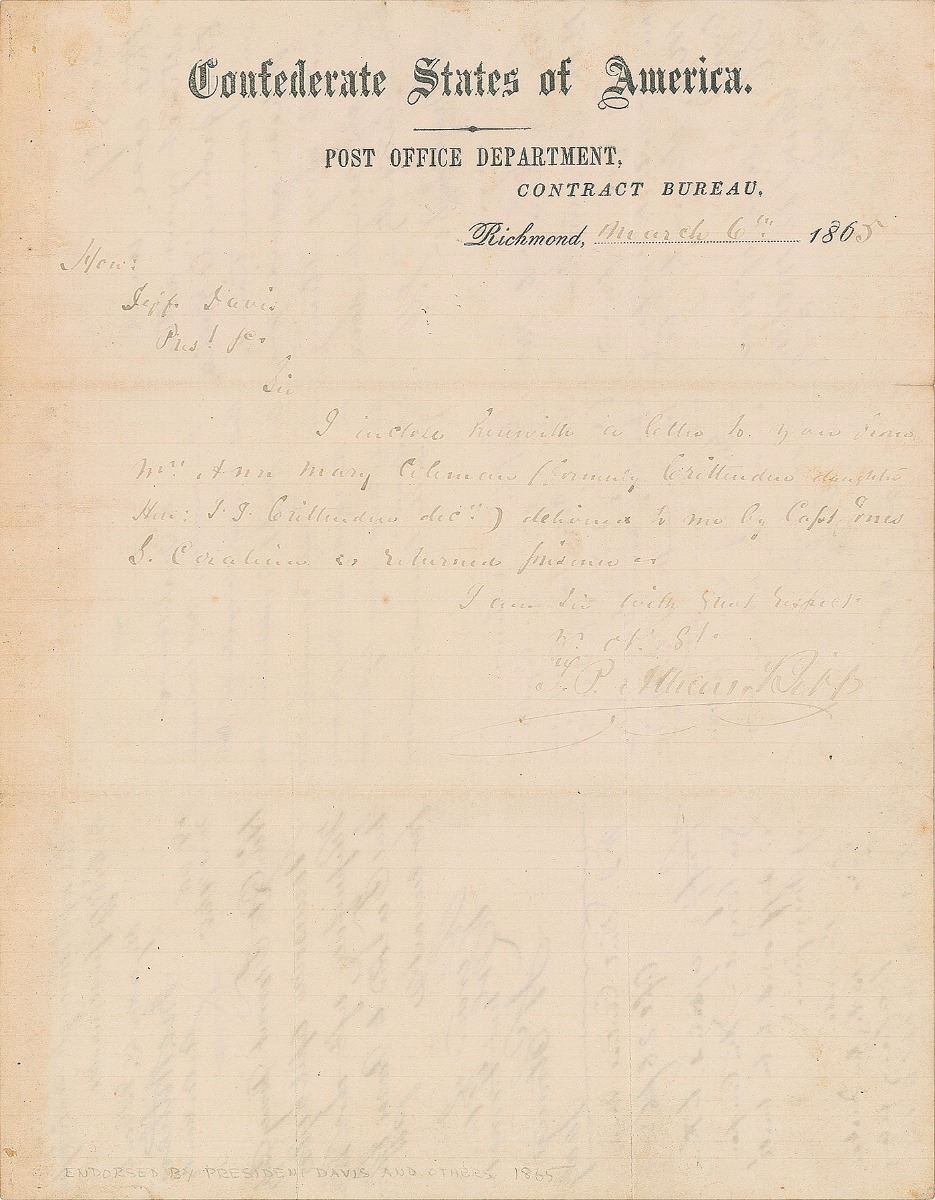 Confederate States of America.
POST OFFICE DEPARTMENT,
CONTRACT BUREAU,
Richmond, March 6th 1865
Hon:
Jeff. Davis
Prest &c.
Sir
I inclose herewith a letter to you from
Mrs Ann Mary Coleman (formerly Crittenden daughter
Hon: J. J. Crittenden decd.) delivered to me by Capt Jones
S. Carolina a returned prisoner
I am Sir with great respect
yr obt. St.
ENDORSED BY PRESIDENT DAVIS AND OTHERS 1865